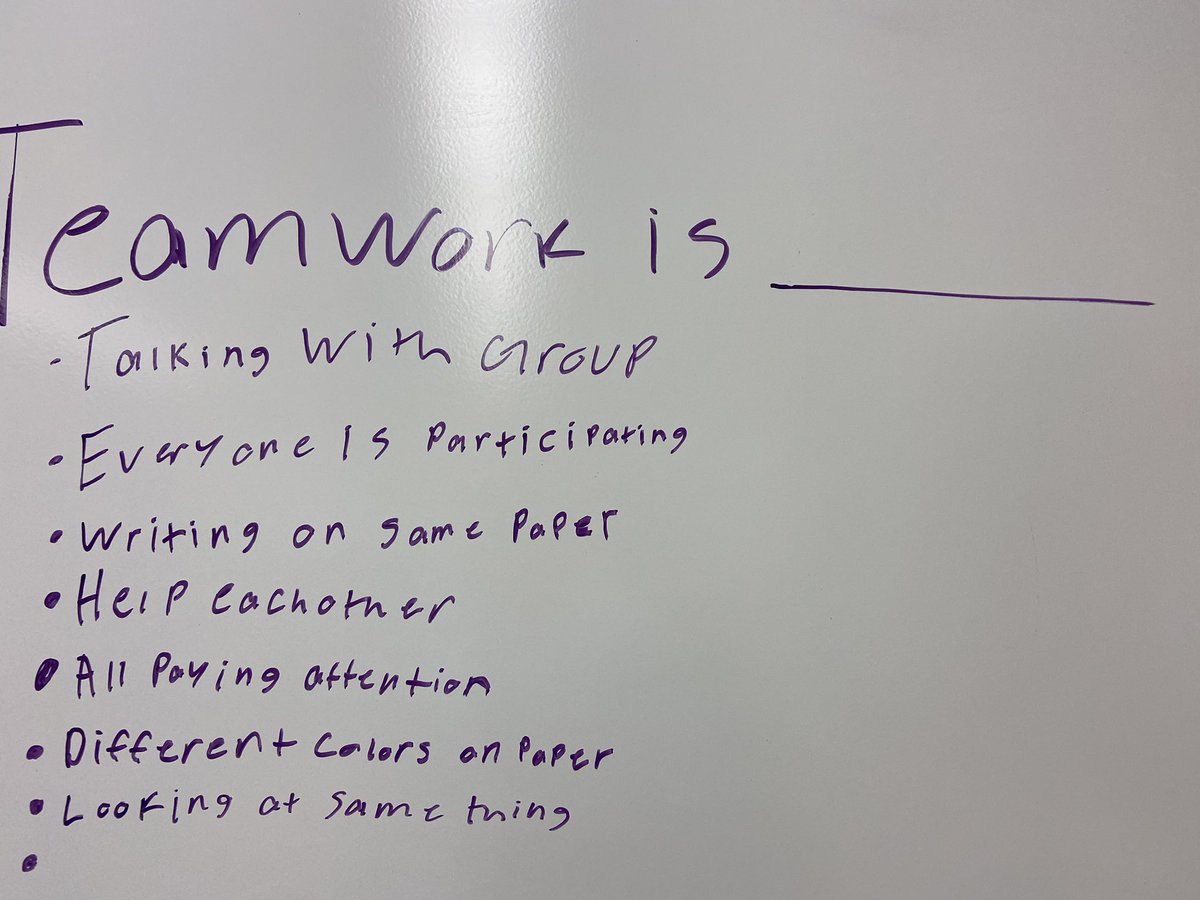 Teamwork is ________
- Talking with Group
• Everyone Is Participating
• Writing on same Paper
• Help eachother
• All Paying attention
• Different Colors on Paper
• Looking at same thing
•